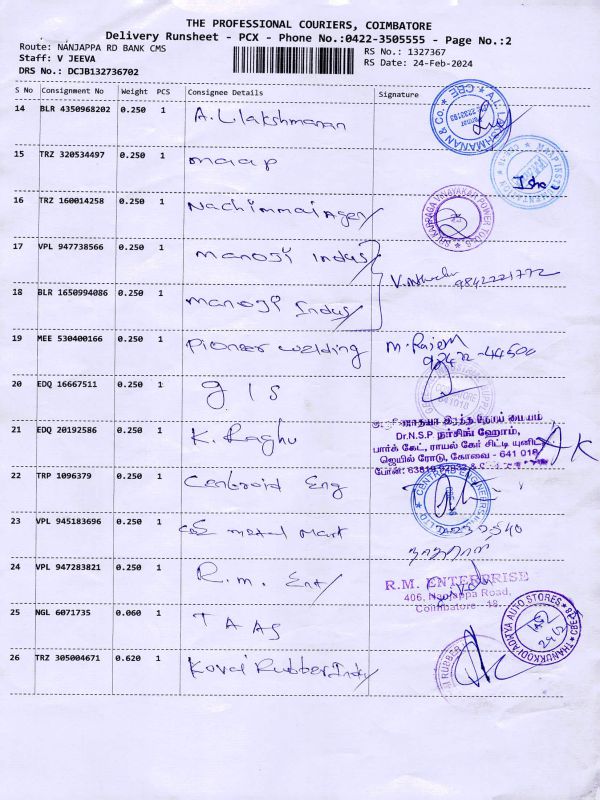 THE PROFESSIONAL COURIERS, COIMBATORE
Delivery Runsheet - PCX - Phone No.:0422-3505555 - Page No.:2
Route: NANJAPPA RD BANK CMS
RS No.: 1327367
Staff: V JEEVA
RS Date: 24-Feb-2024
DRS No.: DCJB132736702
S No Consignment No Weight PCS Consignee Details Signature
14 BLR 4350968202 0.250 1 A.L.lakshmanan
15 TRZ 320534497 0.250 1 maap
16 TRZ 160014258 0.250 1
17 VPL 947738566 0.250 1 manoji Indus
9842221772
18 BLR 1650994086 0.250 1 manoji Indus
19 MEE 530400166 0.250 1 pioneer welding
20 EDQ 16667511 0.250 1 g I S
21 EDQ 20192586 0.250 1 K. Raghu AK
Dr.N.S.P நர்சிங் ஹோம்,
பார்க் கேட், ராயல் கேர் சிட்டி யுனிட்
ஜெயில் ரோடு, கோவை - 641 018
22 TRP 1096379 0.250 1 Centroid Eng
23 VPL 945183696 0.250 1 metal mart
24 VPL 947283821 0.250 1 R.m. Ent
R.M. ENTERPRISE
406, Nanjappa Road,
Coimbatore - 18.
25 NGL 6071735 0.060 1 T A AS
THANUKKODI ADITYA AUTO STORES CBE-18
26 TRZ 305004671 0.620 1 Kovai Rubber Indu